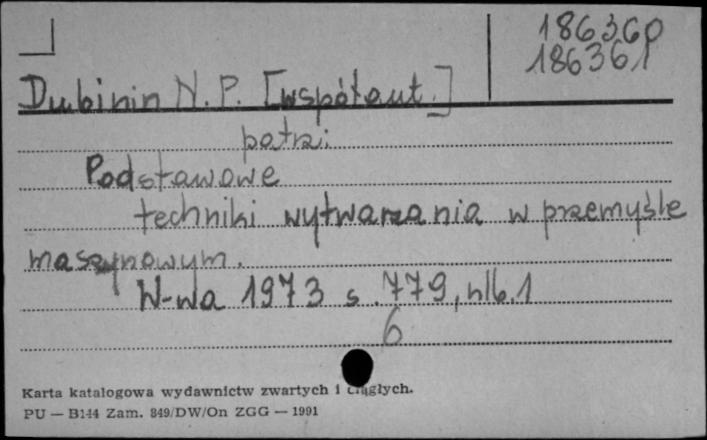 186360
186361
Dubinin N. P. [współaut.]
patrz:
Podstawowe
techniki wytwarzania w przemyśle
maszynowym.
W-wa 1973 s. 779, nlb. 1
6
Karta katalogowa wydawnictw zwartych i ciągłych.
PU — B144 Zam. 849/DW/On ZGG — 1991